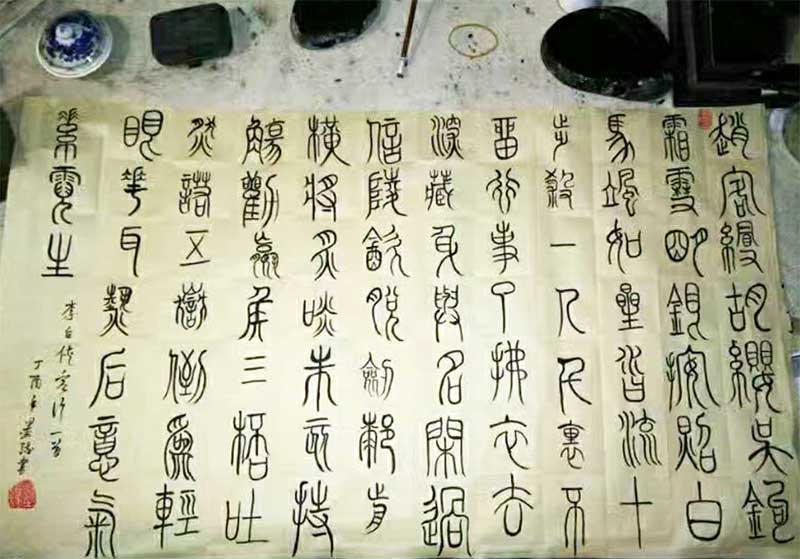 趙客縵胡纓吳鉤
霜雪明銀鞍照白
馬颯如星沓流十
步殺一人千裏不
留行事了拂衣去
深藏身與名閑過
信陵飲脫劍厀前
橫將炙啖朱亥持
觴勸嬴侯三桮吐
然諾五嶽倒為輕
眼花耳熱后意氣
素霓生
李白俠客行一首
丁酉年書